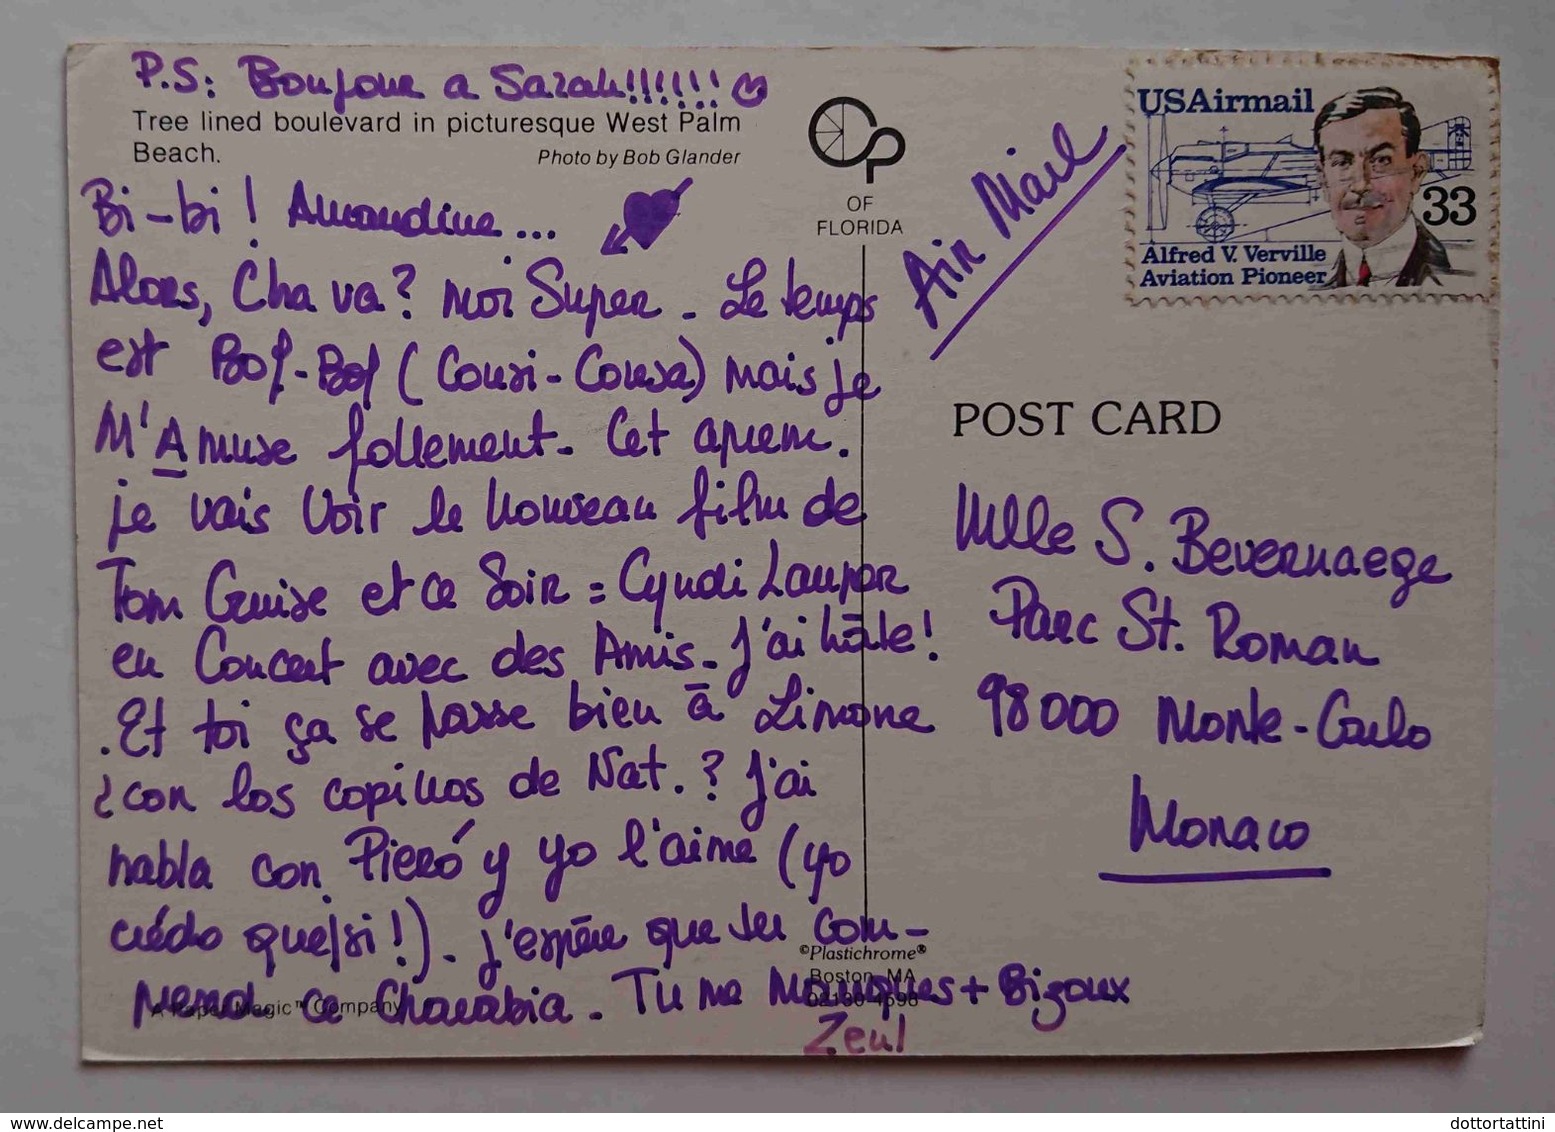 P.S: Bonjour a Sarah!!!!!!
Tree lined boulevard in picturesque West Palm
Beach.
Photo by Bob Glander
Bi-bi! Amandine...
Alors, Cha va? moi Super. Le temps
est Bof-Bof (Cousi-Cousa) mais je
M'Amuse follement. Cet aprem.
je vais Voir le nouveau film de
Tom Cruise et ce Soir = Cyndi Lauper
en Concert avec des Amis. J'ai hâte!
.Et toi ça se passe bien à Limone
¿con los copinos de Nat.? J'ai
habla con Pieró y yo l'aime (yo
crédo que/si!). J'espère que tu com-
prend ce Charabia. Tu me Manques + Bizoux
Zeul
A Paper Magic™ Company
©Plastichrome®
Boston, MA
CP
OF
FLORIDA
Air Mail
USAirmail
33
Alfred V. Verville
Aviation Pioneer
POST CARD
Mlle S. Bevernaege
Parc St. Roman
98000 Monte-Carlo
Monaco
dottortattini